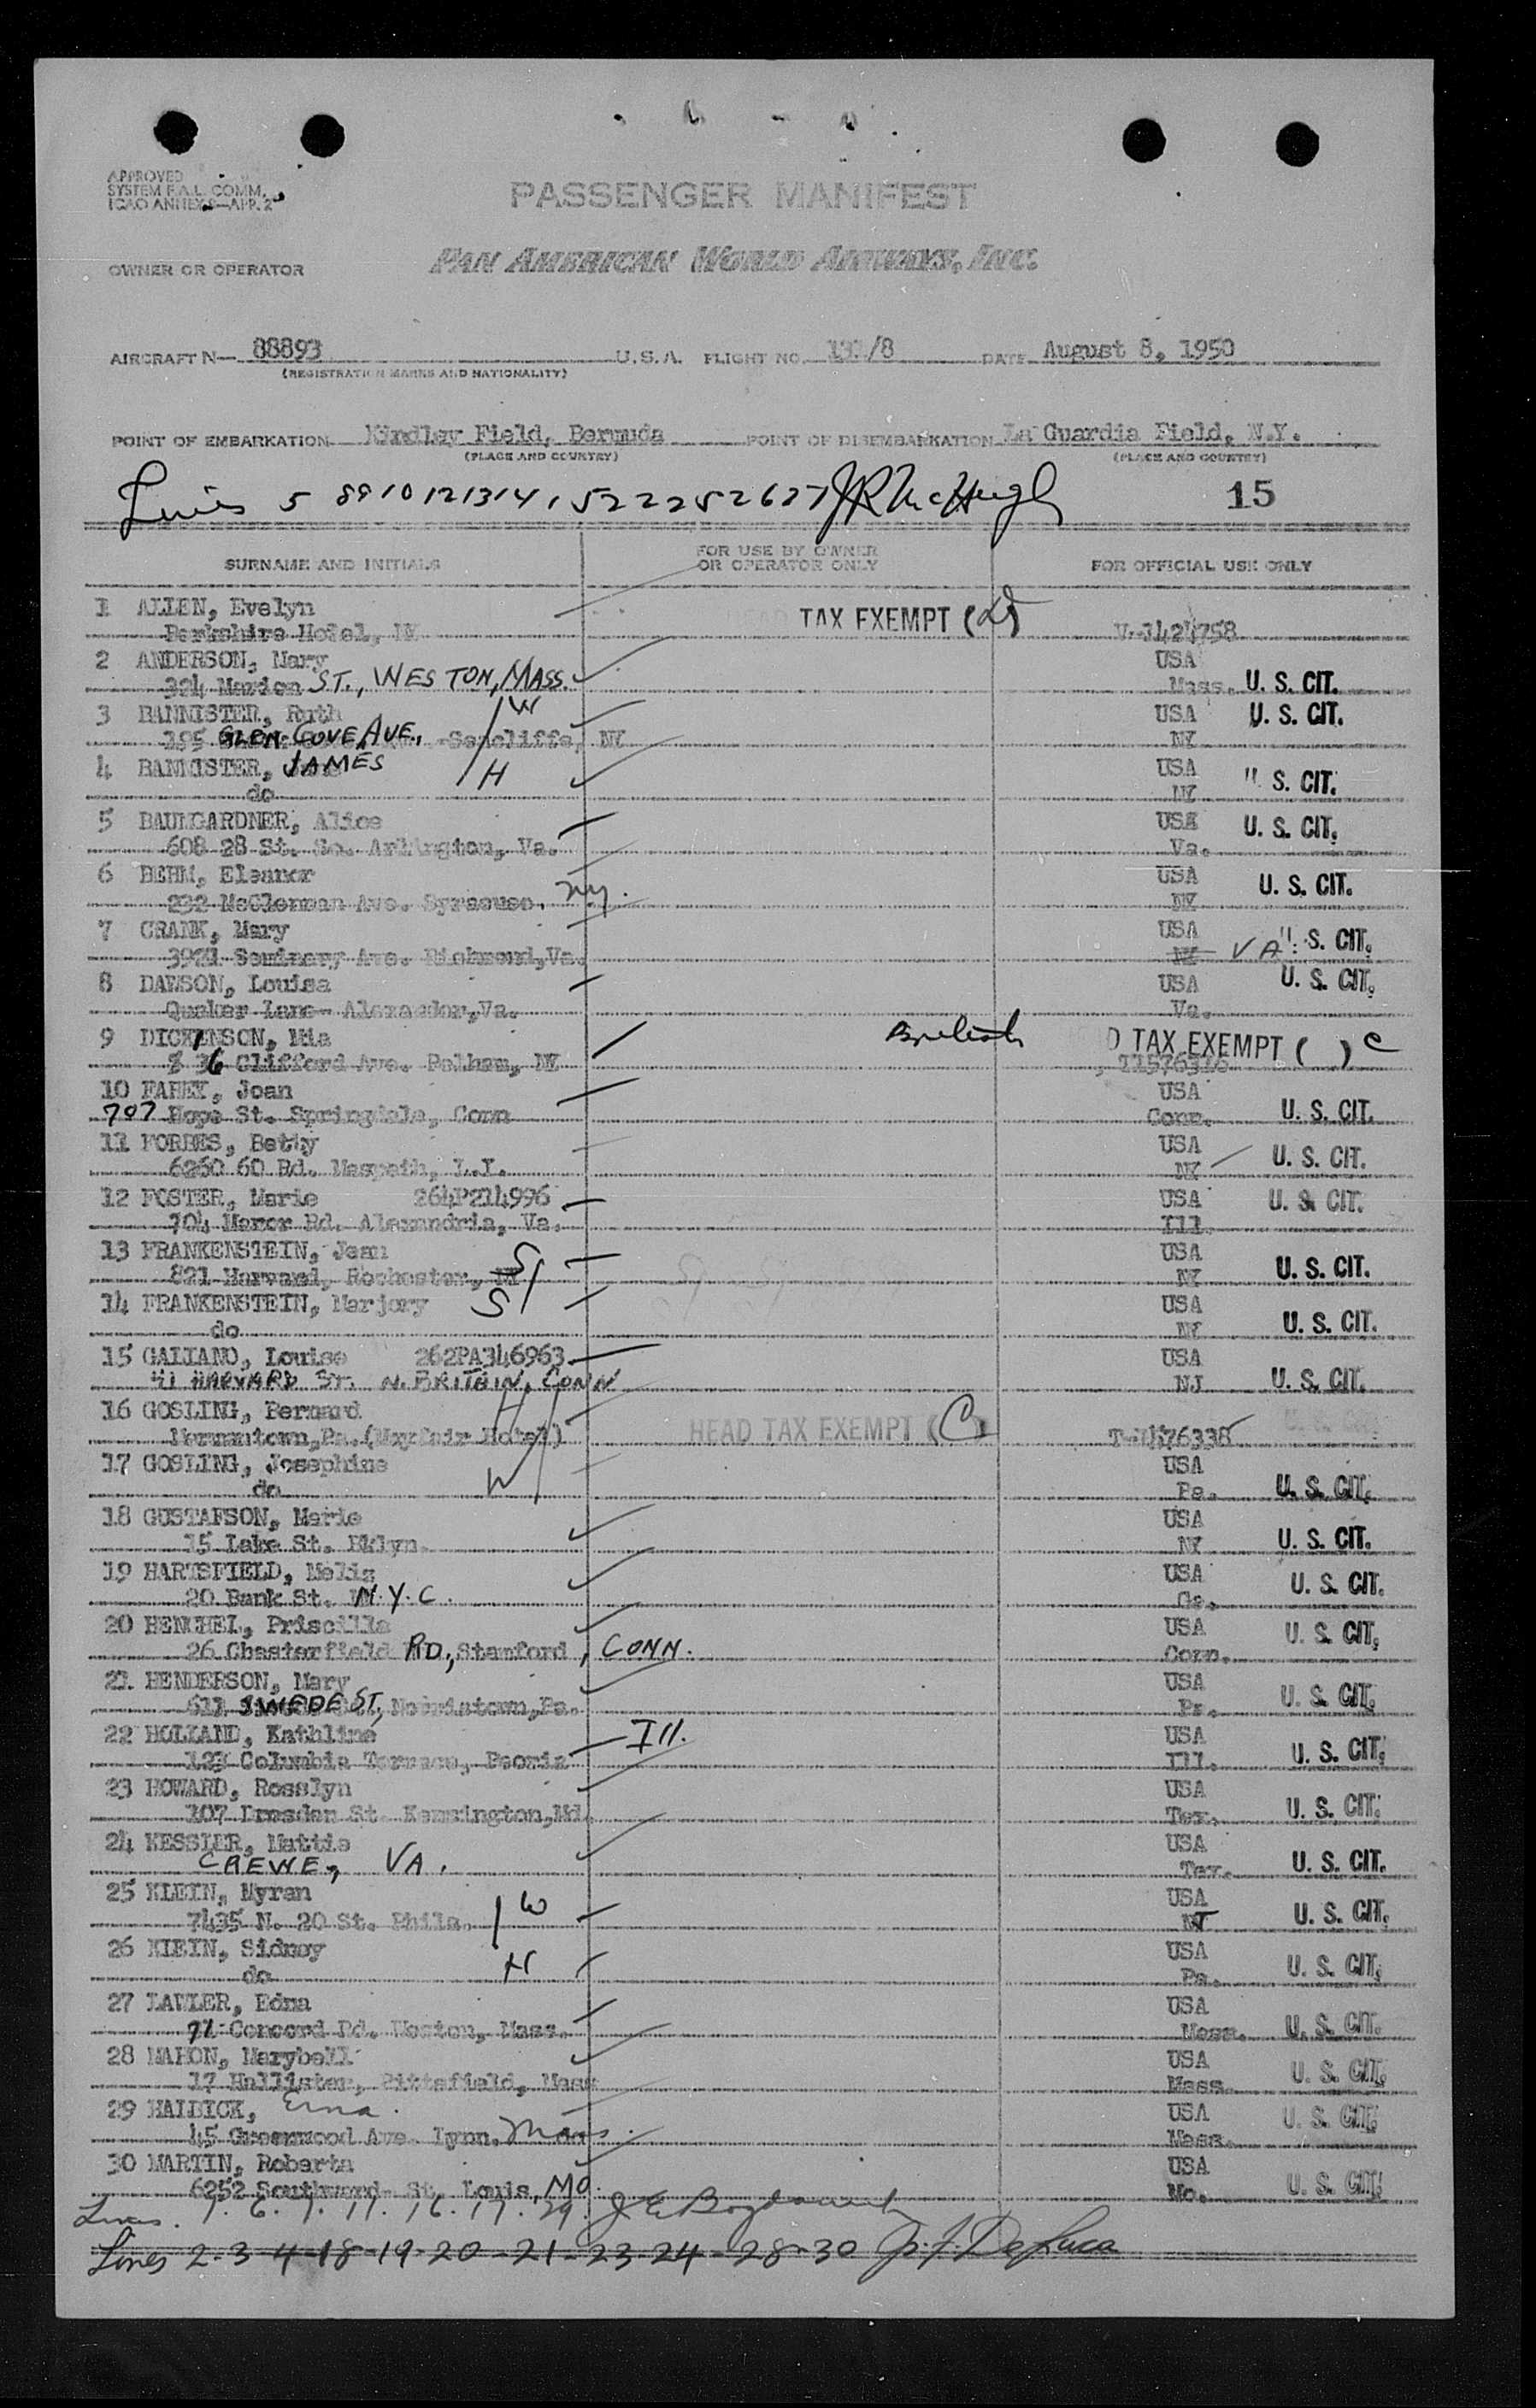 APPROVED
SYSTEM F.A.L. COMM.
ICAO ANNEX 9—APP. 2
PASSENGER MANIFEST
OWNER OR OPERATOR PAN AMERICAN WORLD AIRWAYS, INC.
AIRCRAFT N— 88893 U.S.A. FLIGHT NO. /8 DATE August 8, 1950
(REGISTRATION MARKS AND NATIONALITY)
POINT OF EMBARKATION Kindley Field, Bermuda POINT OF DISEMBARKATION La Guardia Field, N.Y.
(PLACE AND COUNTRY) (PLACE AND COUNTRY)
Lines 5 8 9 10 12 13 14 15 22 25 26 27 J R McHugh 15
SURNAME AND INITIALS FOR USE BY OWNER OR OPERATOR ONLY FOR OFFICIAL USE ONLY
1 ALLEN, Evelyn TAX EXEMPT
Berkshire Hotel, NY V-3424758
2 ANDERSON, Mary USA
394 Marion ST., WESTON, MASS. Mass. U. S. CIT.
3 BANNISTER, Ruth W USA U. S. CIT.
195 GLEN COVE AVE., Seacliffe, NY NY
4 BANNISTER, JAMES H USA " S. CIT.
do NY
5 BAUMGARDNER, Alice USA U. S. CIT.
608 28 St. So. Arlington, Va. Va.
6 BEHM, Eleanor USA U. S. CIT.
292 McClennan Ave. Syracuse, N.Y. NY
7 CRANK, Mary USA S. CIT.
3971 Seminary Ave. Richmond, Va. NY VA
8 DAWSON, Louisa USA U. S. CIT.
Quaker Lane- Va. Va.
9 DICKINSON, Mia British D TAX EXEMPT ( ) C
36 Clifford Ave. Pelham, NY
10 FAHEY, Joan USA
707 Hope St. Springdale, Conn Conn. U. S. CIT.
11 FORBES, Betty USA
6260 60 Rd. Maspeth, L.I. NY U. S. CIT.
12 FOSTER, Marie 264P214996 USA U. S. CIT.
704 Manor Rd. Alexandria, Va. Ill.
13 FRANKENSTEIN, Jean S USA
821 Harvard, Rochester, NY NY U. S. CIT.
14 FRANKENSTEIN, Marjory S USA
do NY U. S. CIT.
15 GALIANO, Louise 262PA346963 USA
41 HARVARD ST. N. BRITAIN, CONN NJ U. S. CIT.
16 GOSLING, Bernard H HEAD TAX EXEMPT (C)
Germantown, Pa. (Mayfair Hotel)
17 GOSLING, Josephine USA
do W Pa. U. S. CIT.
18 GUSTAFSON, Marie USA
15 Lake St. Bklyn. NY U. S. CIT.
19 HARTSFIELD, Melis USA U. S. CIT.
20 Bank St. N.Y.C. Ga.
20 HENCHEL, Priscilla USA U. S. CIT.
26 Chesterfield RD., Stamford, CONN. Conn.
21 HENDERSON, Mary USA
611 SWEDE ST, Norristown, Pa. Pa. U. S. CIT.
22 HOLLAND, Kathline Ill. USA
123 Columbia Terrace, Peoria Ill. U. S. CIT.
23 HOWARD, Rosslyn USA
107 Dresden St. Kensington, Md. Tex. U. S. CIT.
24 KESSLER, Mattie USA
CREWE, VA. Tex. U. S. CIT.
25 KLEIN, Myran W USA
7435 N. 20 St. Phila. NJ U. S. CIT.
26 KLEIN, Sidney H USA
do Pa. U. S. CIT.
27 LAWLER, Edna USA
71 Concord Rd. Weston, Mass. Mass. U. S. CIT.
28 MAHON, Marybell USA
17 Hallister, Pittsfield, Mass Mass. U. S. CIT.
29 HALBICK, Erna USA U. S. CIT.
45 Greenwood Ave. Lynn, Mass. Mass.
30 MARTIN, Roberta USA
6252 Southwood St. Louis, MO. Mo. U. S. CIT.
Lines 1. 6. 7. 11. 16. 17. 29.
Lines 2-3-4-18-19-20-21-23-24-28-30 DeLuca